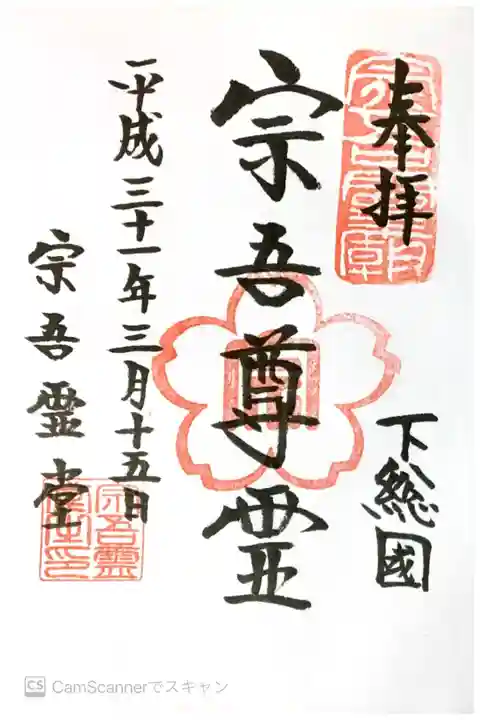 奉拝
下総國
宗吾尊霊
平成三十一年三月十五日
宗吾霊堂
宗吾霊堂印
CS CamScannerでスキャン